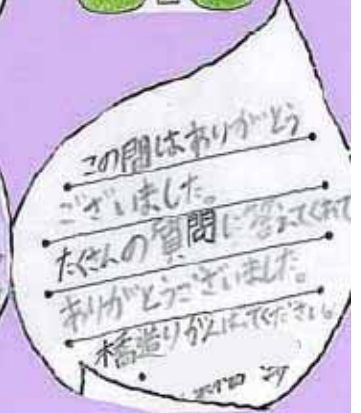 この間はありがとう
ございました。
たくさんの質問に答えてくれて
ありがとうございました。
橋造りがんばってください。